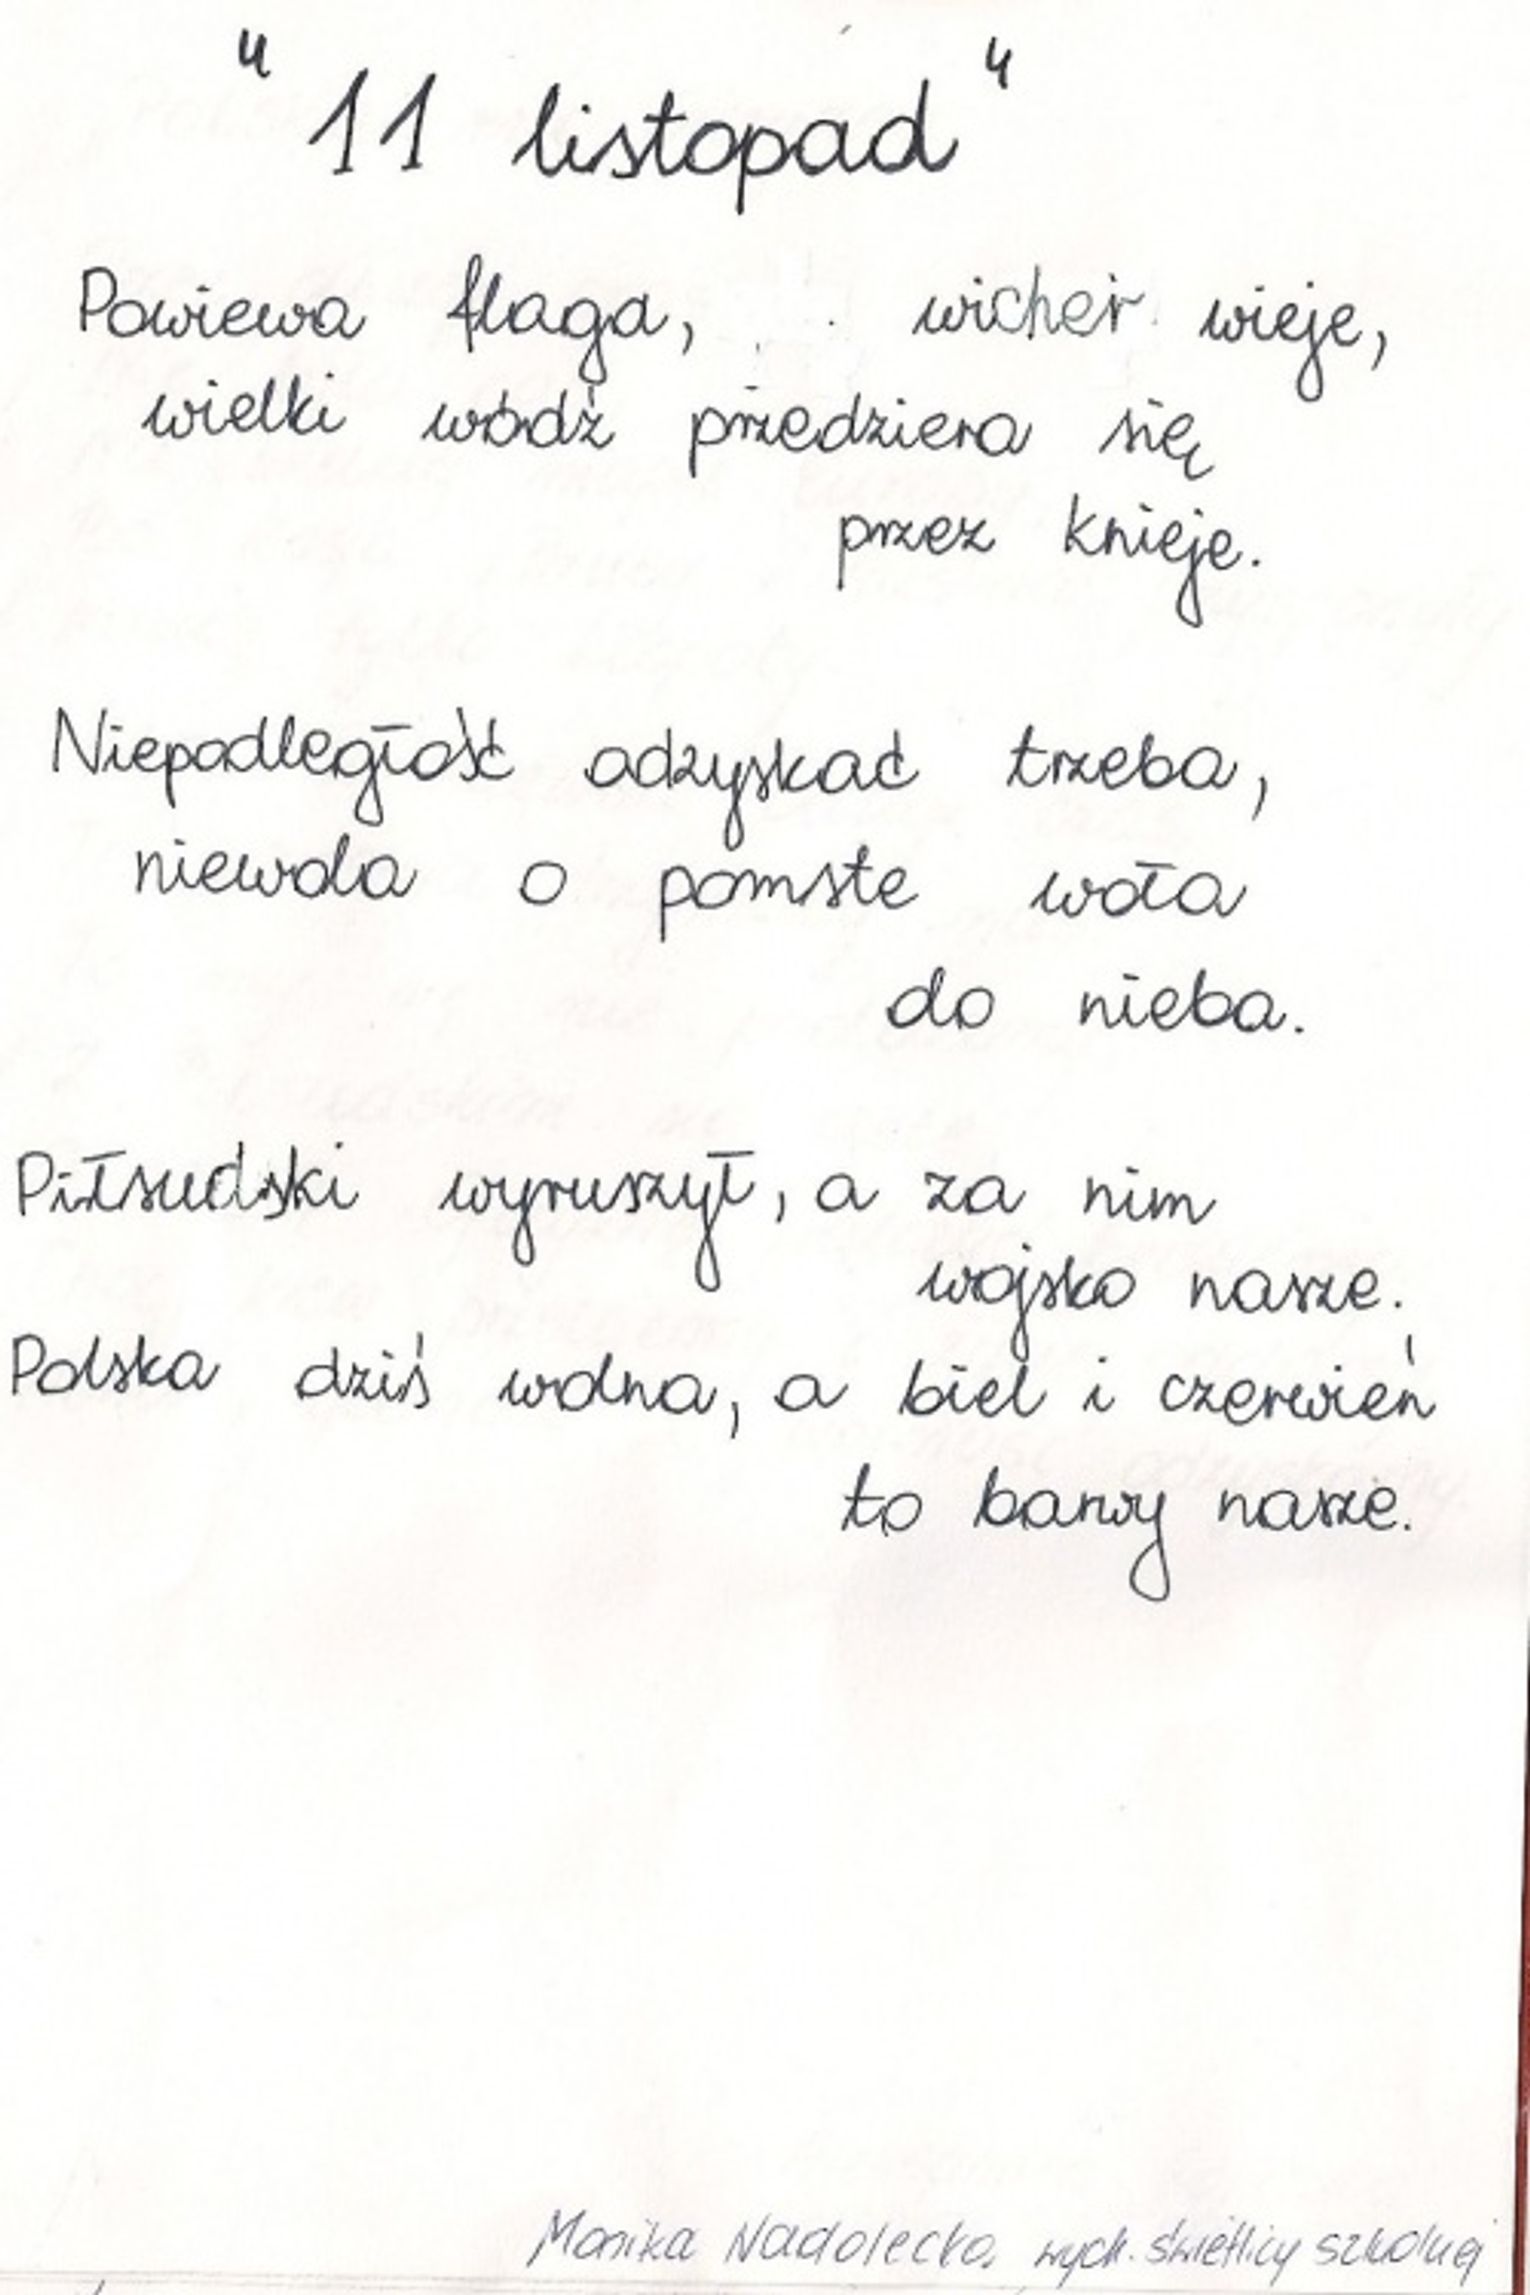 "11 listopad"
Powiewa flaga, wicher wieje,
wielki wódź przedziera się
przez knieje.
Niepodległość odzyskać trzeba,
niewola o pomste woła
do nieba.
Piłsudski wyruszył, a za nim
wojsko nasze.
Polska dziś wolna, a biel i czerwień
to barwy nasze.
Monika Nadolecka, wych. świetlicy szkolnej